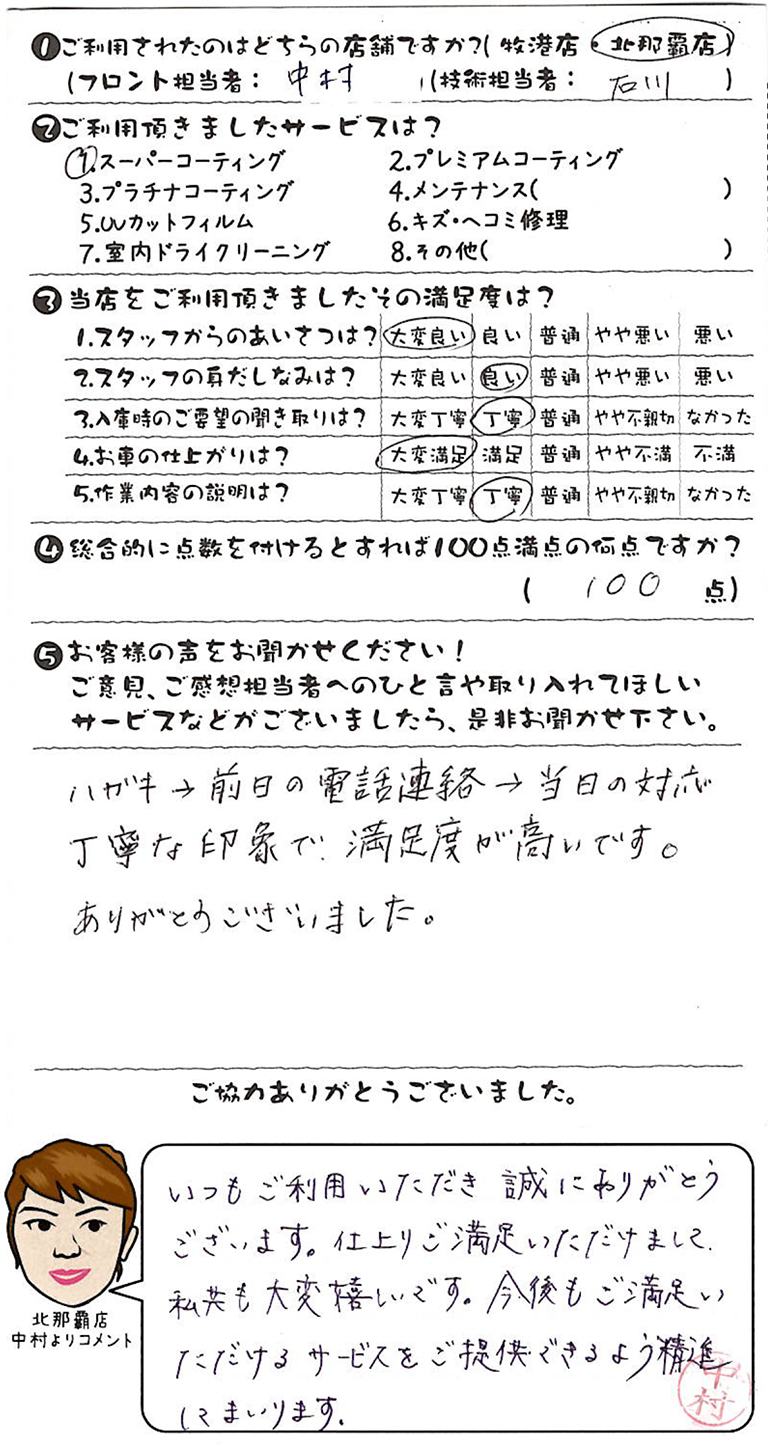 ❶ご利用されたのはどちらの店舗ですか?(牧港店・北那覇店)
(フロント担当者: 中村 )(技術担当者: 石川 )
❷ご利用頂きましたサービスは?
1.スーパーコーティング 2.プレミアムコーティング
3.プラチナコーティング 4.メンテナンス( )
5.UVカットフィルム 6.キズ・ヘコミ修理
7.室内ドライクリーニング 8.その他( )
❸当店をご利用頂きましたその満足度は?
1.スタッフからのあいさつは? 大変良い 良い 普通 やや悪い 悪い
2.スタッフの身だしなみは? 大変良い 良い 普通 やや悪い 悪い
3.入庫時のご要望の聞き取りは? 大変丁寧 丁寧 普通 やや不親切 なかった
4.お車の仕上がりは? 大変満足 満足 普通 やや不満 不満
5.作業内容の説明は? 大変丁寧 丁寧 普通 やや不親切 なかった
❹総合的に点数を付けるとすれば100点満点の何点ですか?
( 100 点)
❺お客様の声をお聞かせください!
ご意見、ご感想担当者へのひと言や取り入れてほしい
サービスなどがございましたら、是非お聞かせ下さい。
ハガキ→前日の電話連絡→当日の対応
丁寧な印象で、満足度が高いです。
ありがとうございました。
ご協力ありがとうございました。
いつもご利用いただき誠にありがとう
ございます。仕上りご満足いただけまして、
私共も大変嬉しいです。今後もご満足い
ただけるサービスをご提供できるよう精進
してまいります。
中村
北那覇店
中村よりコメント